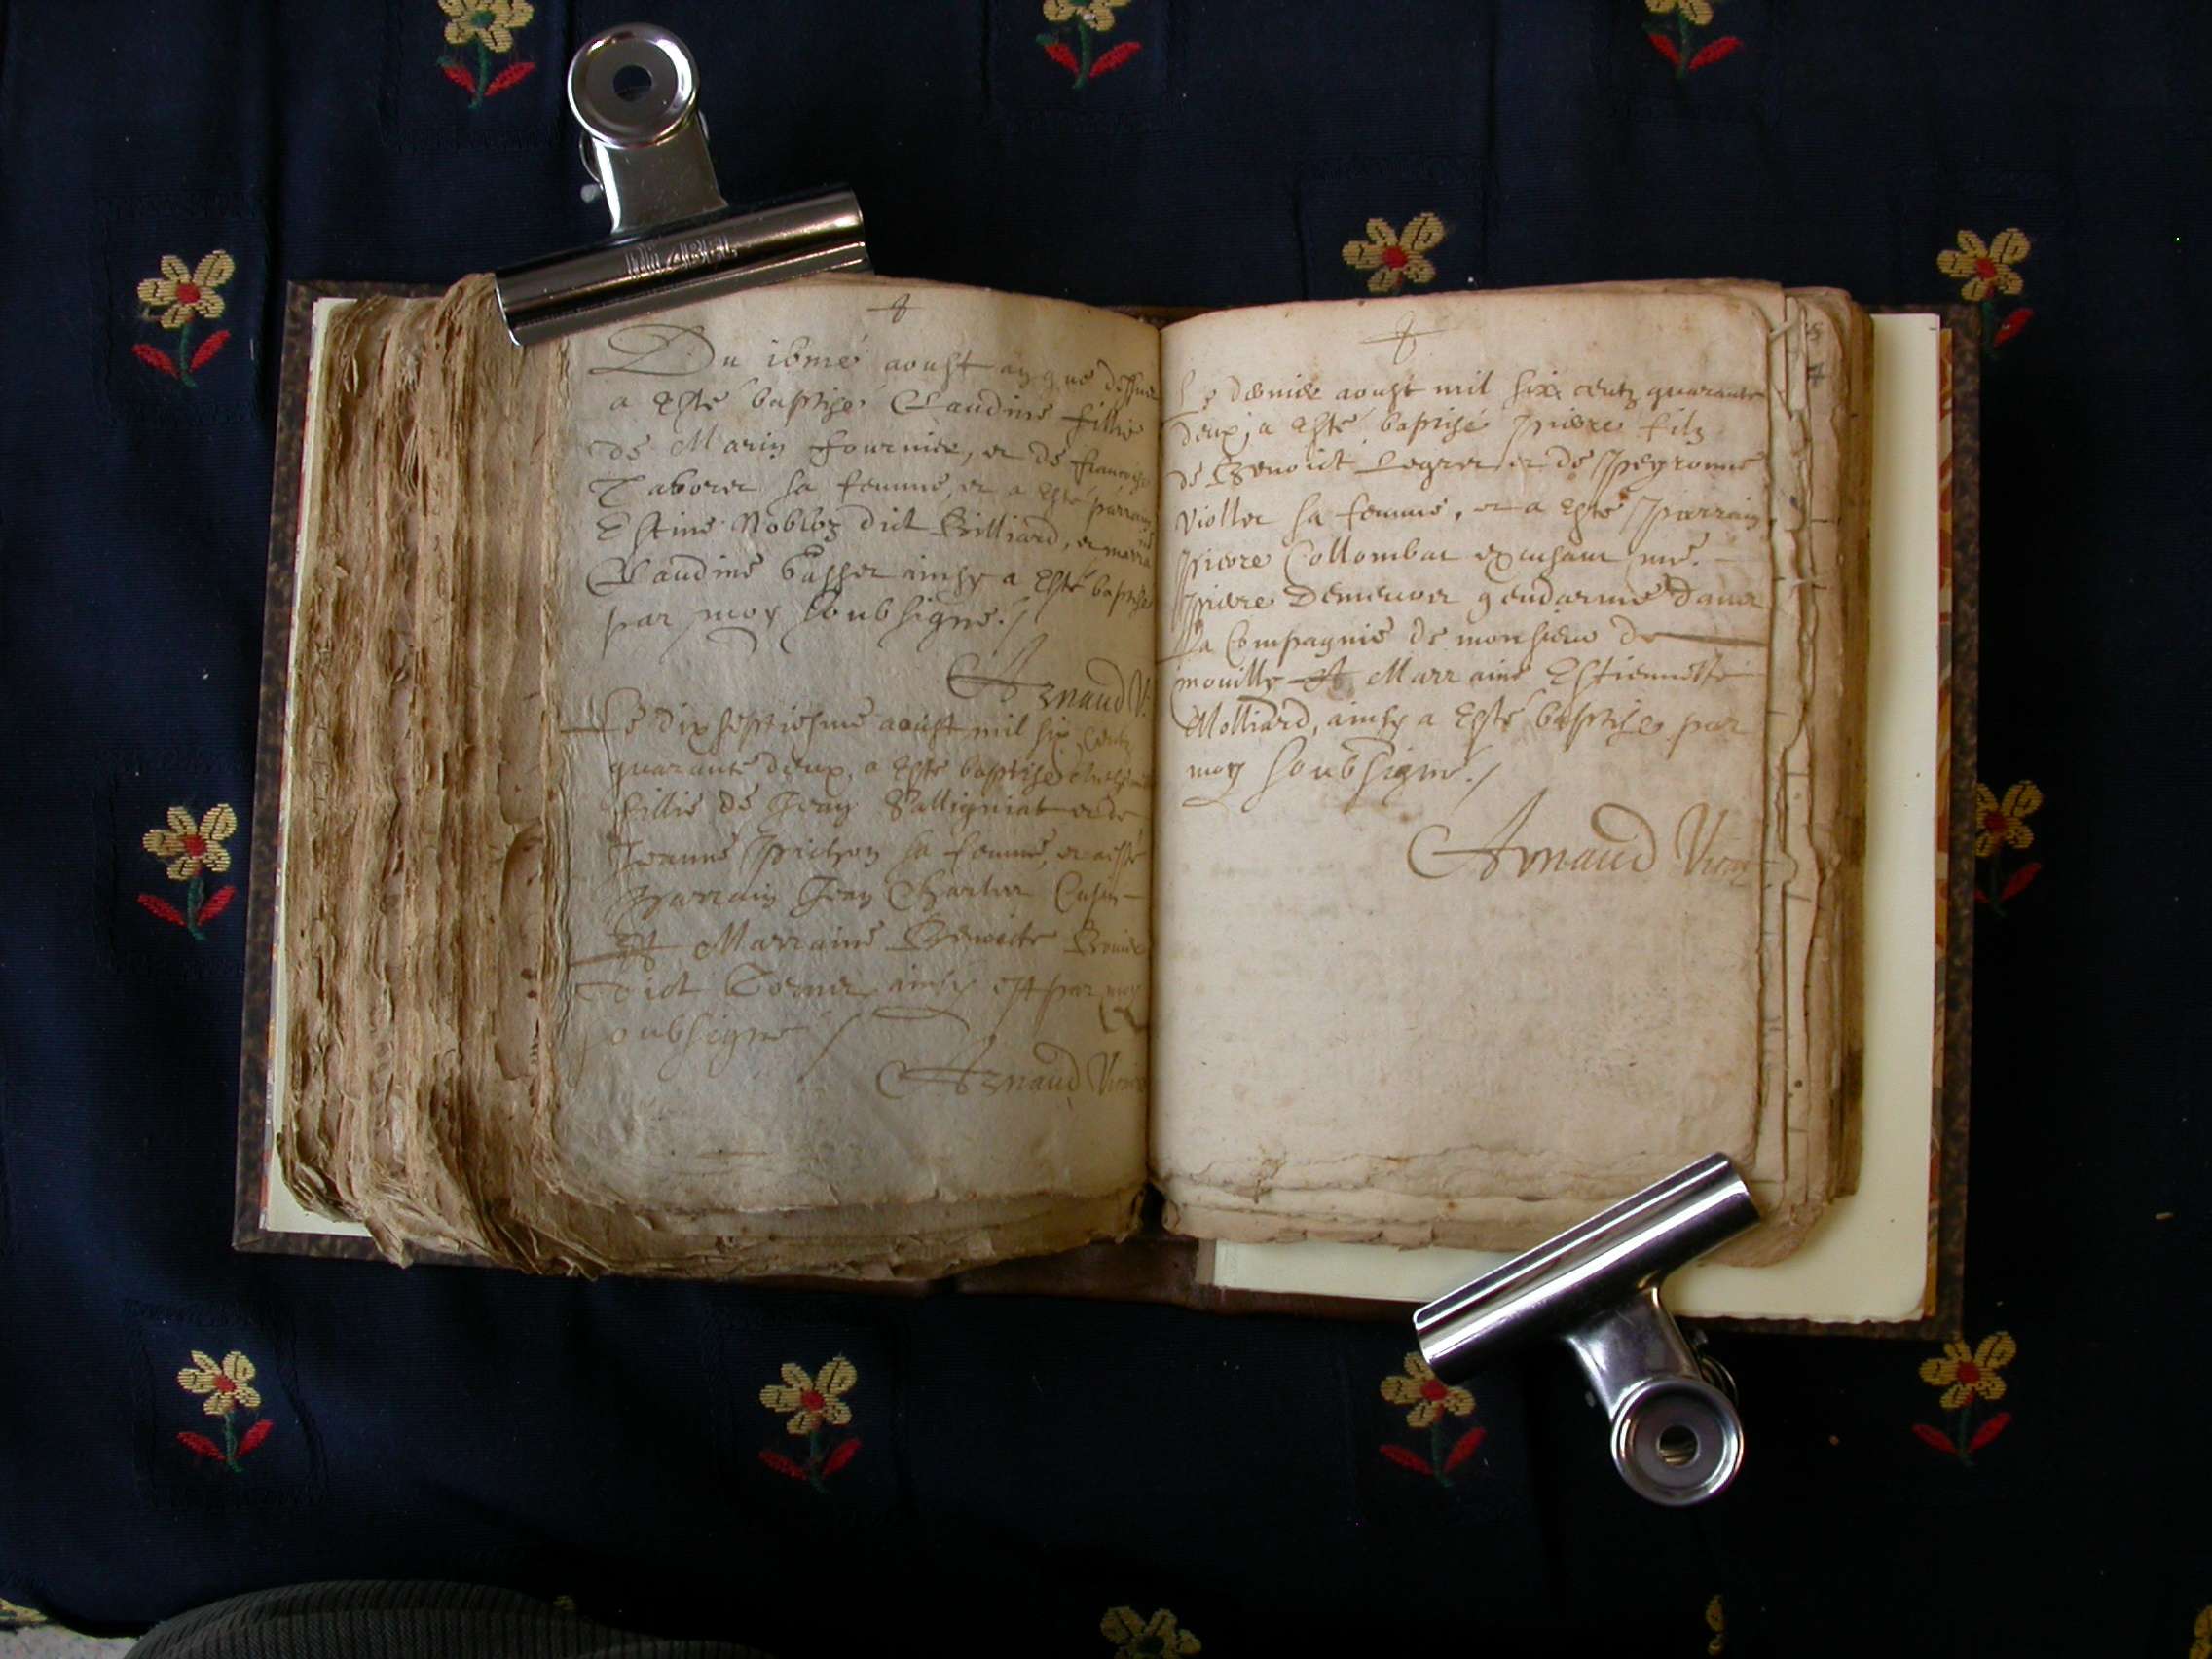 Du 16me aoust an que dessus
a esté baptisé Claudine fillie
de Marin fournier, et de francoise
Taboret sa femme, et a esté parrain
Estine Nobloz dict Billiard, et marrai
ne
Claudine basset ainsy a esté baptisé
par moy soubsigne./
Arnaud V.
Le dixseptiesme aoust mil six centz
quarante deux, a esté baptisé
fillie de Jean Balligniat et de
Jeanne Pichon sa femme, et a esté
Parrain Jean Charlin Cusin
Et Marraine Benoite
dict ainsy est par moy
soubsigne /
Arnaud Vicaire
Le dernier aoust mil six centz quarante
deux, a esté baptisé Pierre filz
de Benoict Legret et de Peyronne
Viollet sa femme, et a esté Parrain,
Pierre Collombat mé.
Pierre Demeuver gendarme dans
La Compagnie de monsieur de
mouilly Et Marraine Estiennette
Molliard, ainsy a esté baptisé par
moy soubsigne./
Arnaud Vicaire